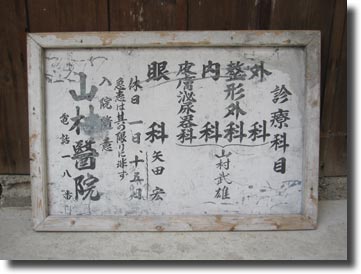 診療科目
外科
整形外科
内科
皮膚泌尿器科
山村武雄
眼科
矢田宏
休日 一日 十五日
急患は其の限りに非ず
入院随意
山村醫院
電話一八番